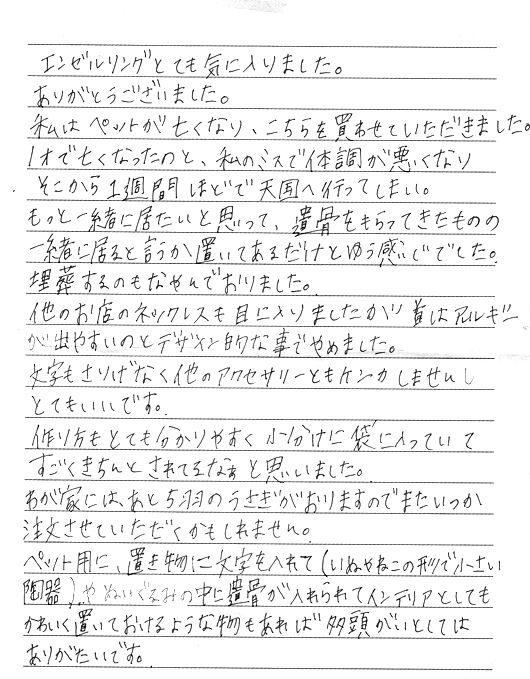 エンゼルリングとても気に入りました。
ありがとうございました。
私はペットが亡くなり、こちらを買わせていただきました。
1才で亡くなったのと、私のミスで体調が悪くなり
そこから1週間ほどで天国へ行ってしまい。
もっと一緒に居たいと思って、遺骨をもらってきたものの
一緒に居ると言うか置いてあるだけとゆう感じでした。
埋葬するのもなやんでおりました。
他のお店のネックレスも目に入りましたが首はアルギー
が出やすいのとデザイン的な事でやめました。
文字もさりげなく他のアクセサリーともケンカしませんし
とてもいいです。
作り方もとても分かりやすく小分けに袋に入っていて
すごくきちんとされてるなぁと思いました。
わが家には、あと5羽のうさぎがおりますのでまたいつか
注文させていただくかもしれません。
ペット用に、置き物に文字を入れて(いぬやねこの形で小さい
陶器)やぬいぐるみの中に遺骨が入れられてインテリアとしても
かわいく置いておけるような物もあれば多頭がいとしては
ありがたいです。